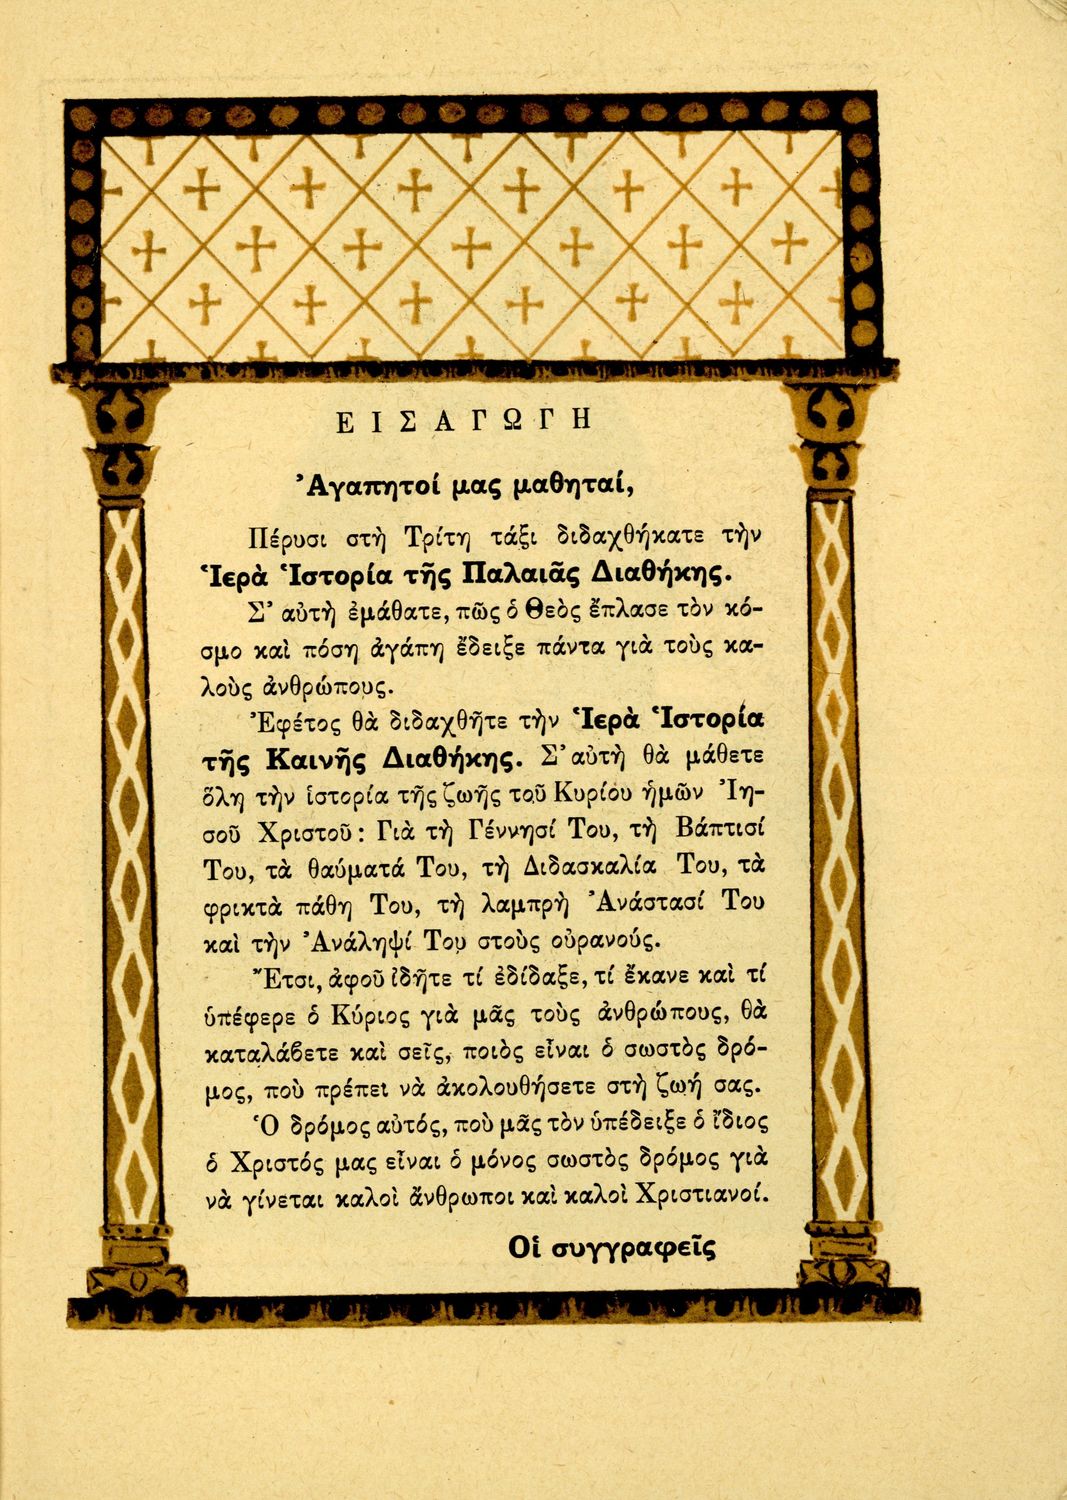 ΕΙΣΑΓΩΓΗ
Ἀγαπητοί μας μαθηταί,
Πέρυσι στὴ Τρίτη τάξι διδαχθήκατε τὴν
Ἱερὰ Ἱστορία τῆς Παλαιᾶς Διαθήκης.
Σ' αὐτὴ ἐμάθατε, πῶς ὁ Θεὸς ἔπλασε τὸν κό-
σμο καὶ πόση ἀγάπη ἔδειξε πάντα γιὰ τοὺς κα-
λοὺς ἀνθρώπους.
Ἐφέτος θὰ διδαχθῆτε τὴν Ἱερὰ Ἱστορία
τῆς Καινῆς Διαθήκης. Σ' αὐτὴ θὰ μάθετε
ὅλη τὴν ἱστορία τῆς ζωῆς τοῦ Κυρίου ἡμῶν Ἰη-
σοῦ Χριστοῦ: Γιὰ τὴ Γέννησί Του, τὴ Βάπτισί
Του, τὰ θαύματά Του, τὴ Διδασκαλία Του, τὰ
φρικτὰ πάθη Του, τὴ λαμπρὴ Ἀνάστασί Του
καὶ τὴν Ἀνάληψί Του στοὺς οὐρανούς.
Ἔτσι, ἀφοῦ ἰδῆτε τί ἐδίδαξε, τί ἔκανε καὶ τί
ὑπέφερε ὁ Κύριος γιὰ μᾶς τοὺς ἀνθρώπους, θὰ
καταλάβετε καὶ σεῖς, ποιὸς εἶναι ὁ σωστὸς δρό-
μος, ποὺ πρέπει νὰ ἀκολουθήσετε στὴ ζωή σας.
Ὁ δρόμος αὐτός, ποὺ μᾶς τὸν ὑπέδειξε ὁ ἴδιος
ὁ Χριστός μας εἶναι ὁ μόνος σωστὸς δρόμος γιὰ
νὰ γίνεται καλοὶ ἄνθρωποι καὶ καλοὶ Χριστιανοί.
Οἱ συγγραφεῖς